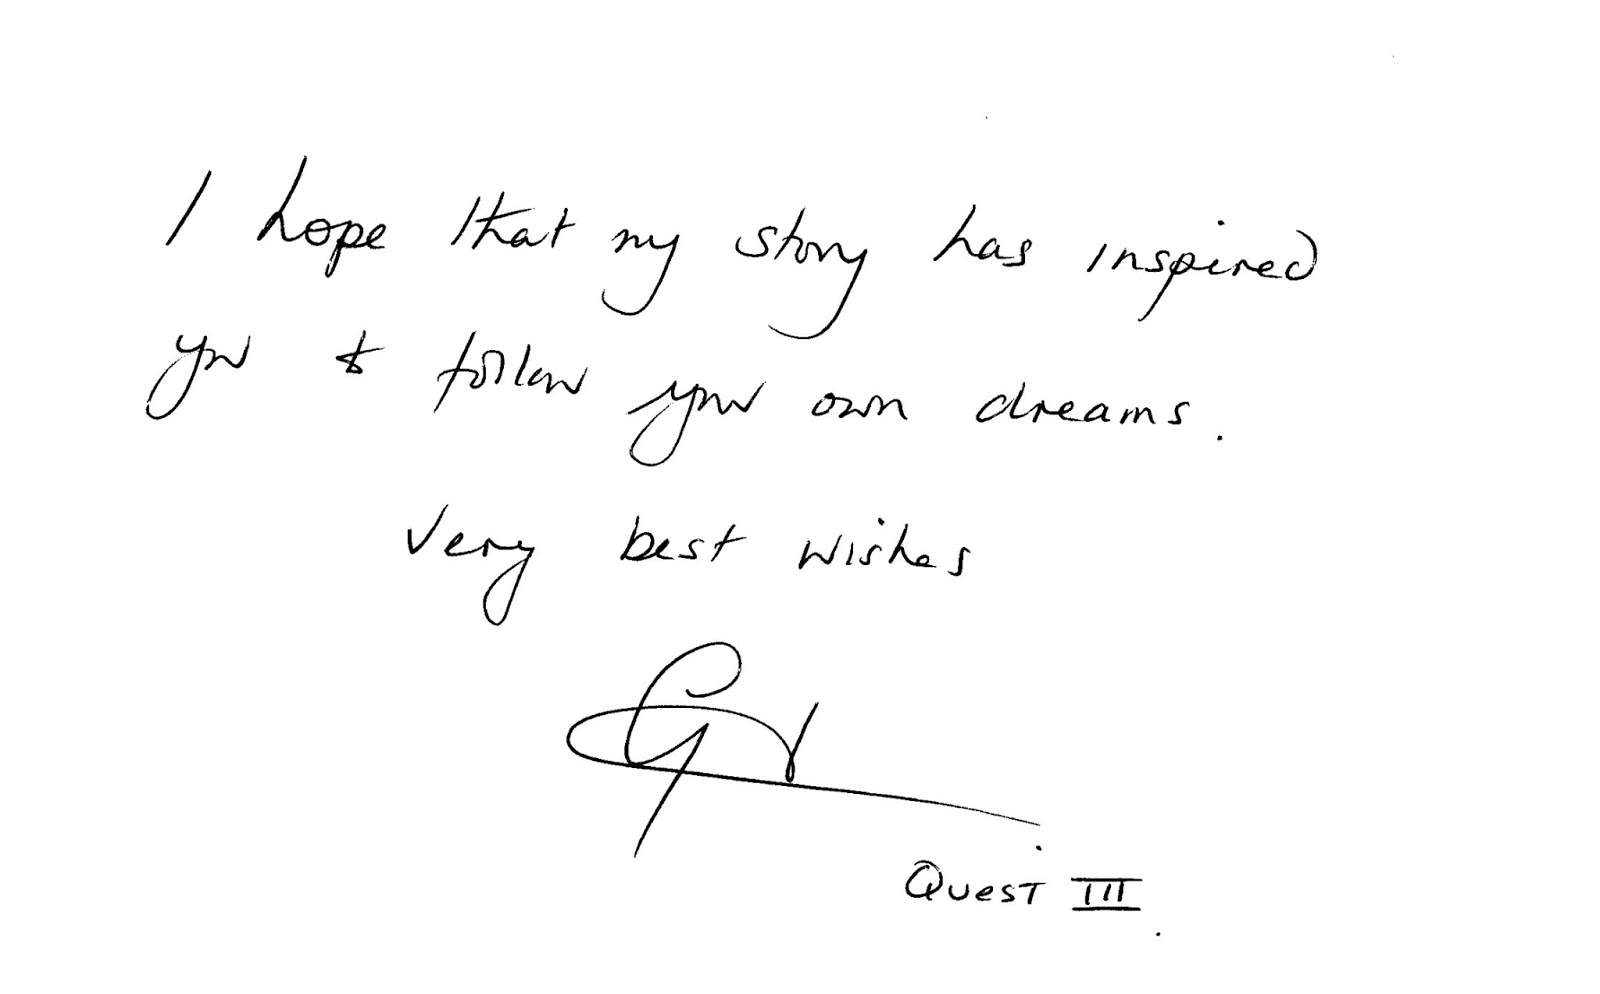 I hope that my story has inspired
you to follow your own dreams.
Very best wishes
QUEST III